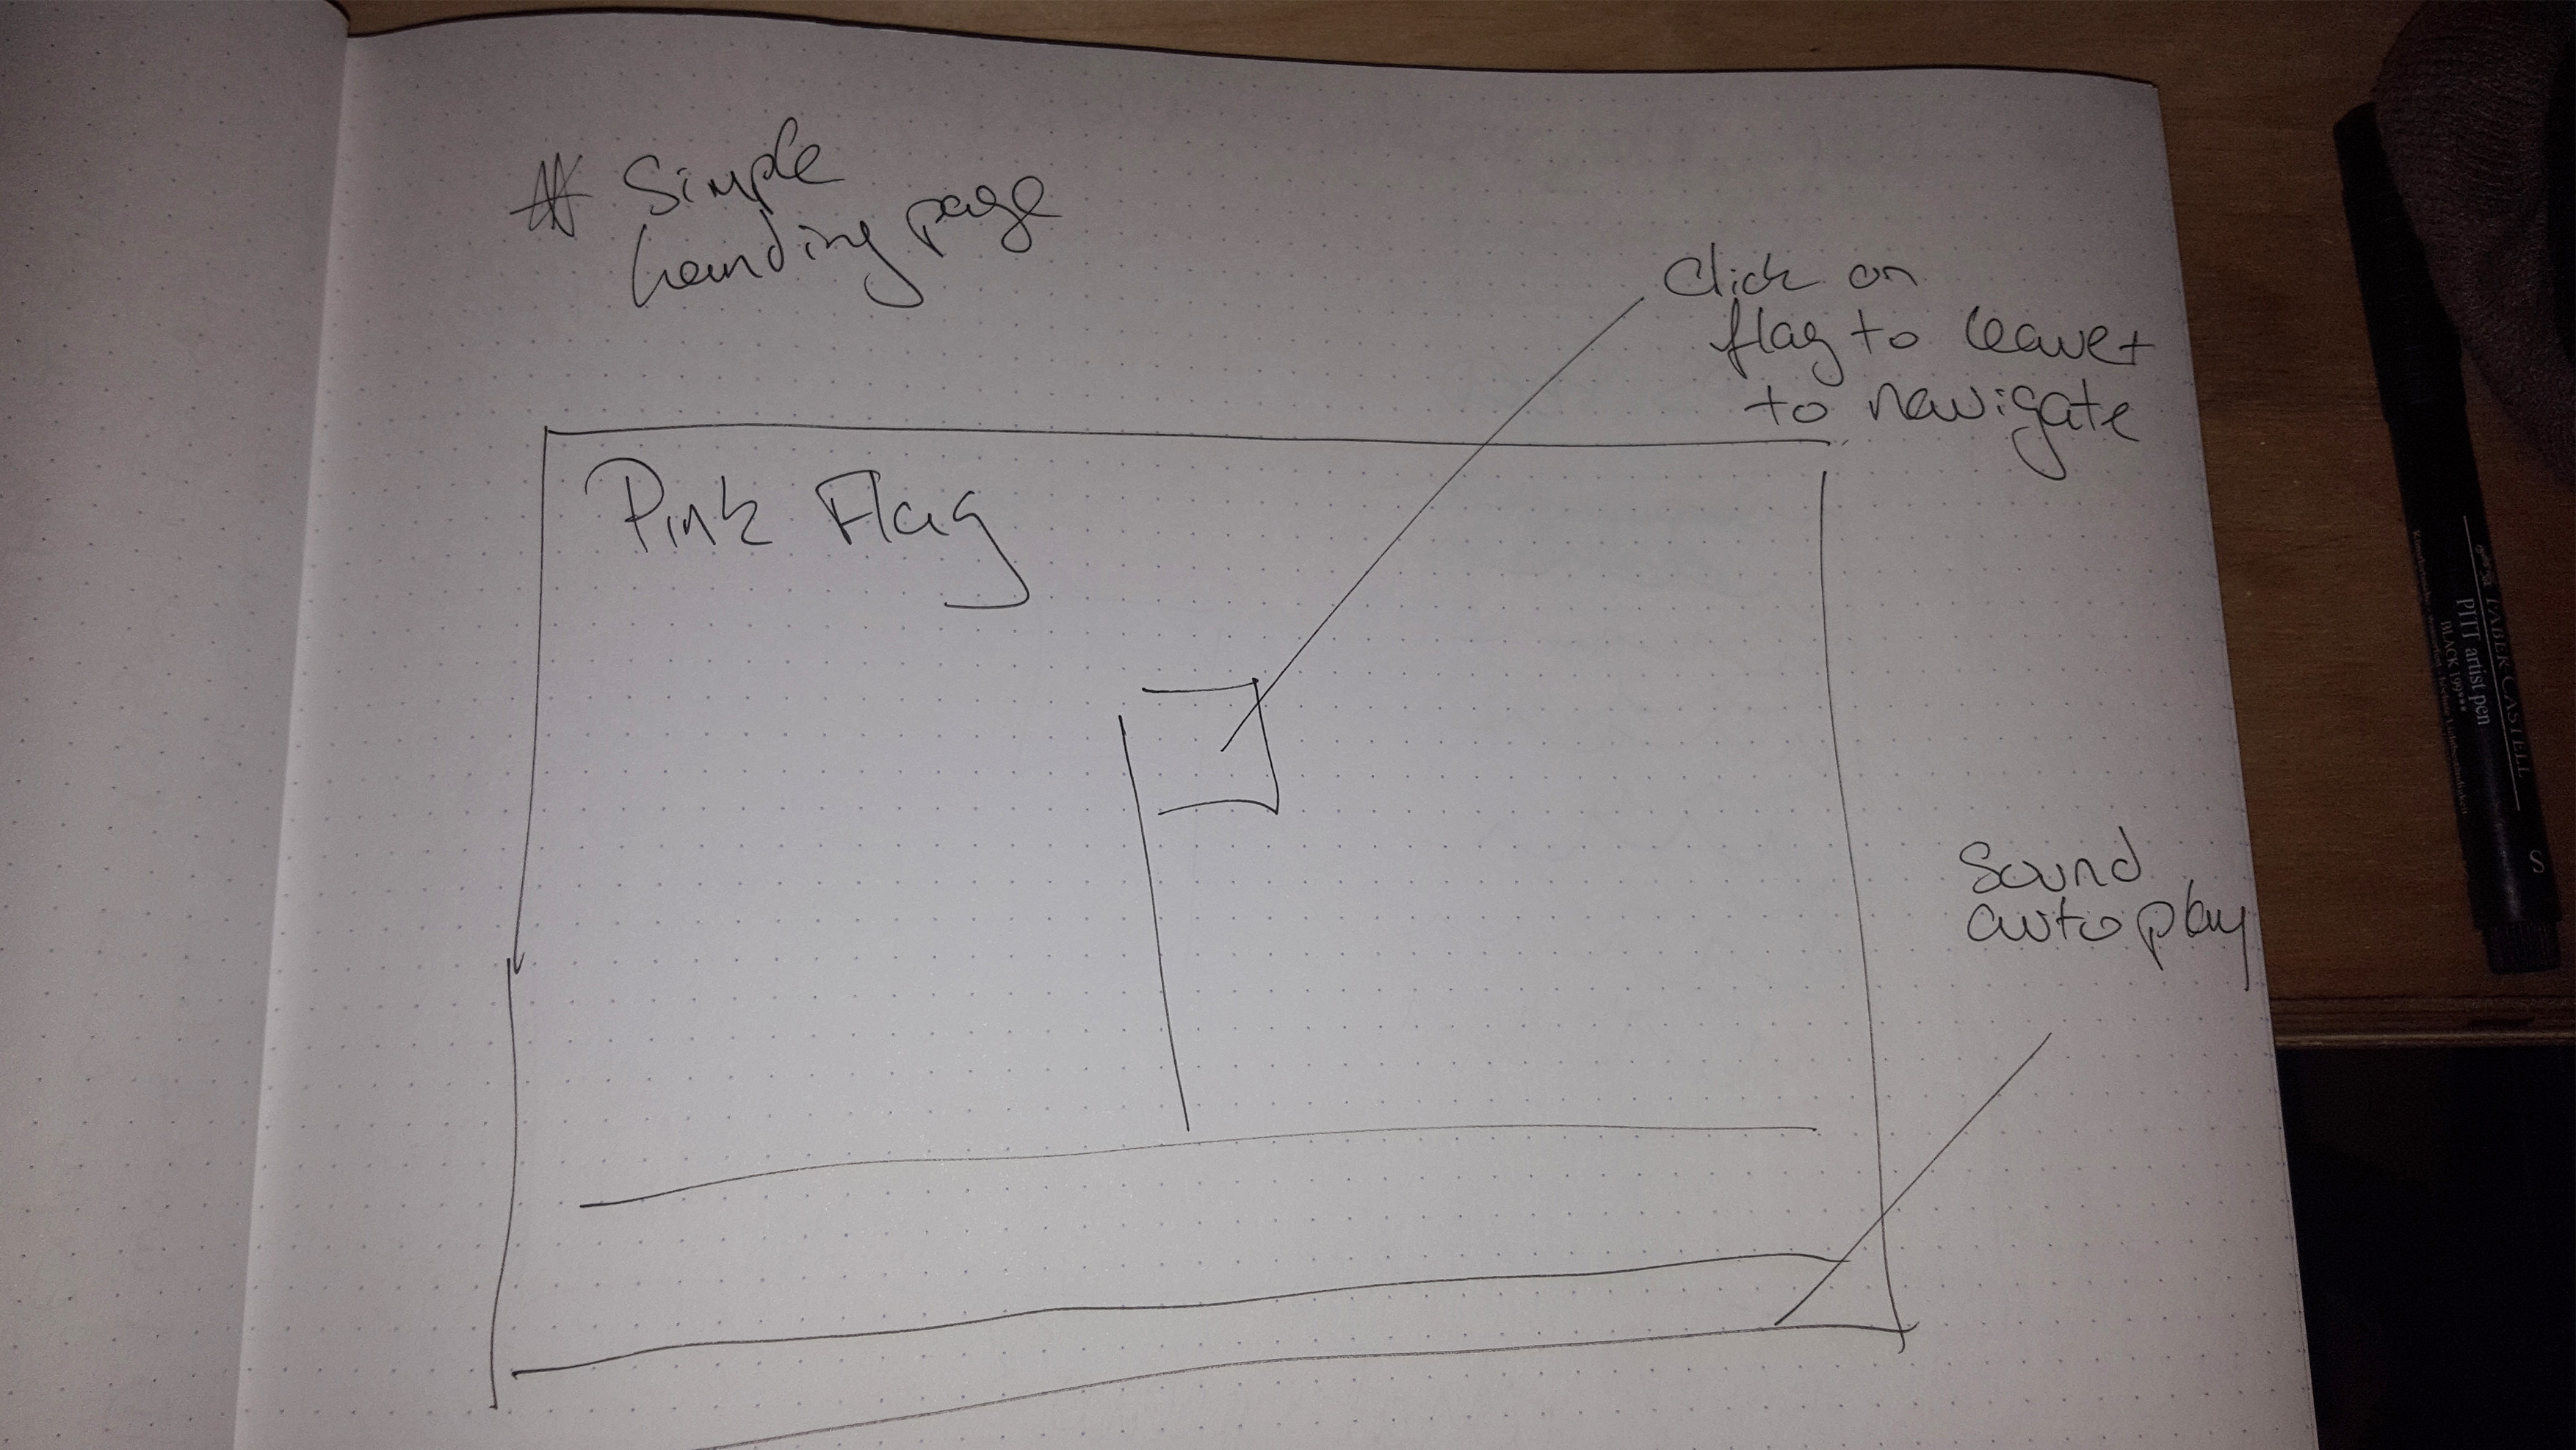 # Simple
Landing page
Click on
flag to leave +
to navigate
Pink Flag
Sound
autoplay
FABER-CASTELL
PITT artist pen
BLACK 199***
S